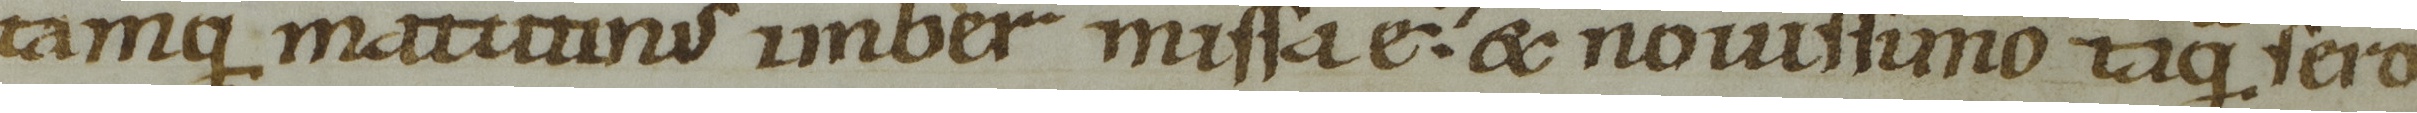 tamq matutinus imber missa e. & nouissimo taq sero